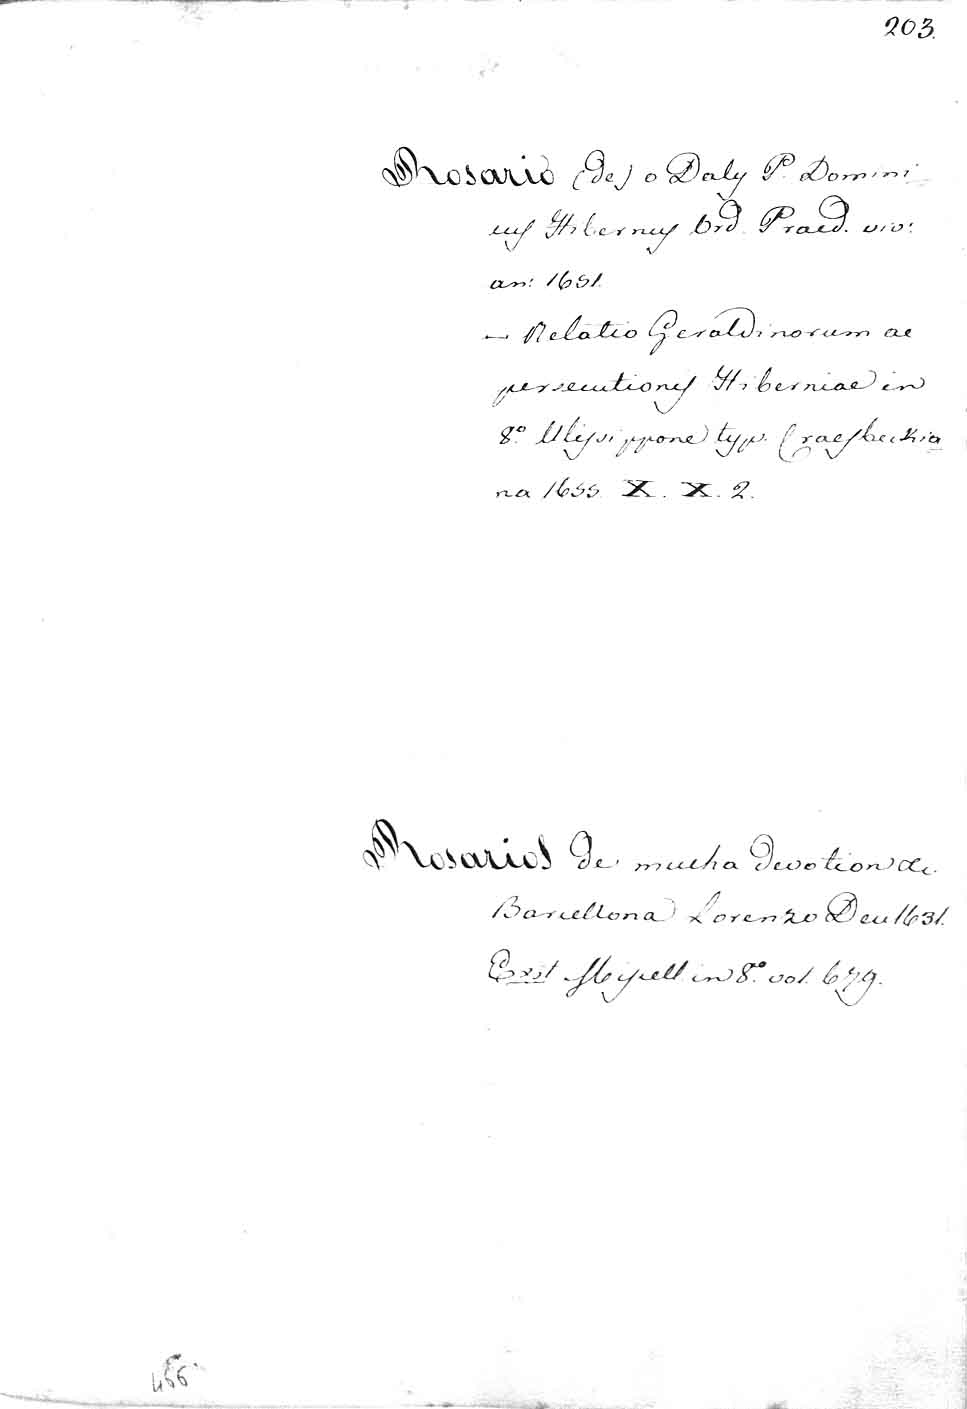 203.
Rosario (de) o Daly P. Domini
cus Hibernus Ord. Praed. viv:
an: 1651.
— Relatio Geraldinorum ac
persecutionis Hiberniae in
8.° Ulysippone typ. Craesbeckia
na 1655. X. X. 2.
Rosarios de mucha devotion &c.
Barcellona Lorenzo Deu 1631.
Exst Miscell. in 8.° vol. 679.